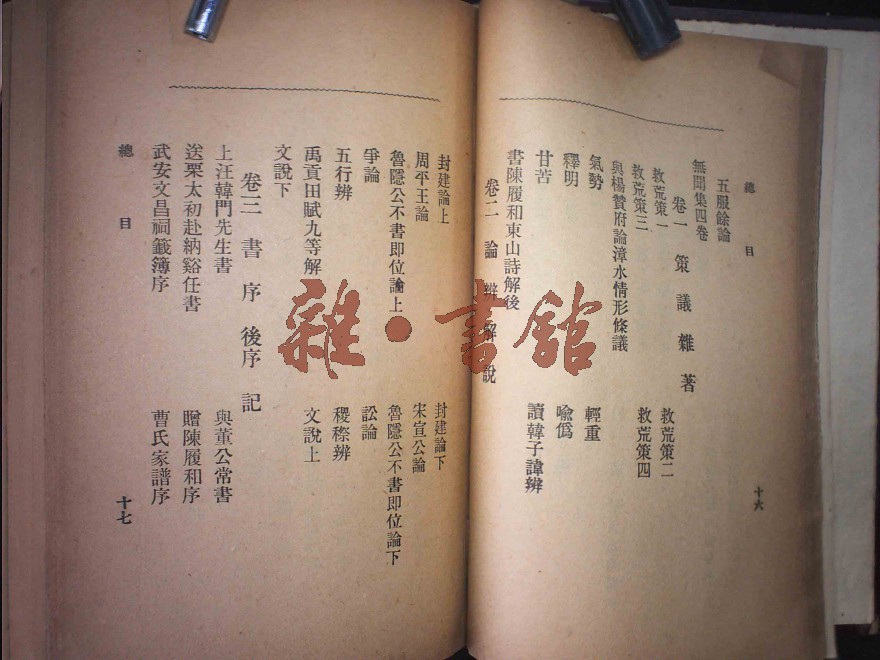 總目
五服餘論
無聞集四卷
卷一 策 議 雜 著
救荒策一 救荒策二
救荒策三 救荒策四
與楊贊府論漳水情形條議
氣勢 輕重
釋明 喩僞
甘苦 讀韓子諱辨
書陳履和東山詩解後
卷二 論 辨 解 說
十六
封建論上 封建論下
周平王論 宋宣公論
魯隱公不書即位論上 魯隱公不書即位論下
爭論 訟論
五行辨 稷穄辨
禹貢田賦九等解 文說上
文說下
卷三 書 序 後序 記
上汪韓門先生書 與董公常書
送栗太初赴納谿任書 贈陳履和序
武安文昌祠籤簿序 曹氏家譜序
總目
十七
雜·書館